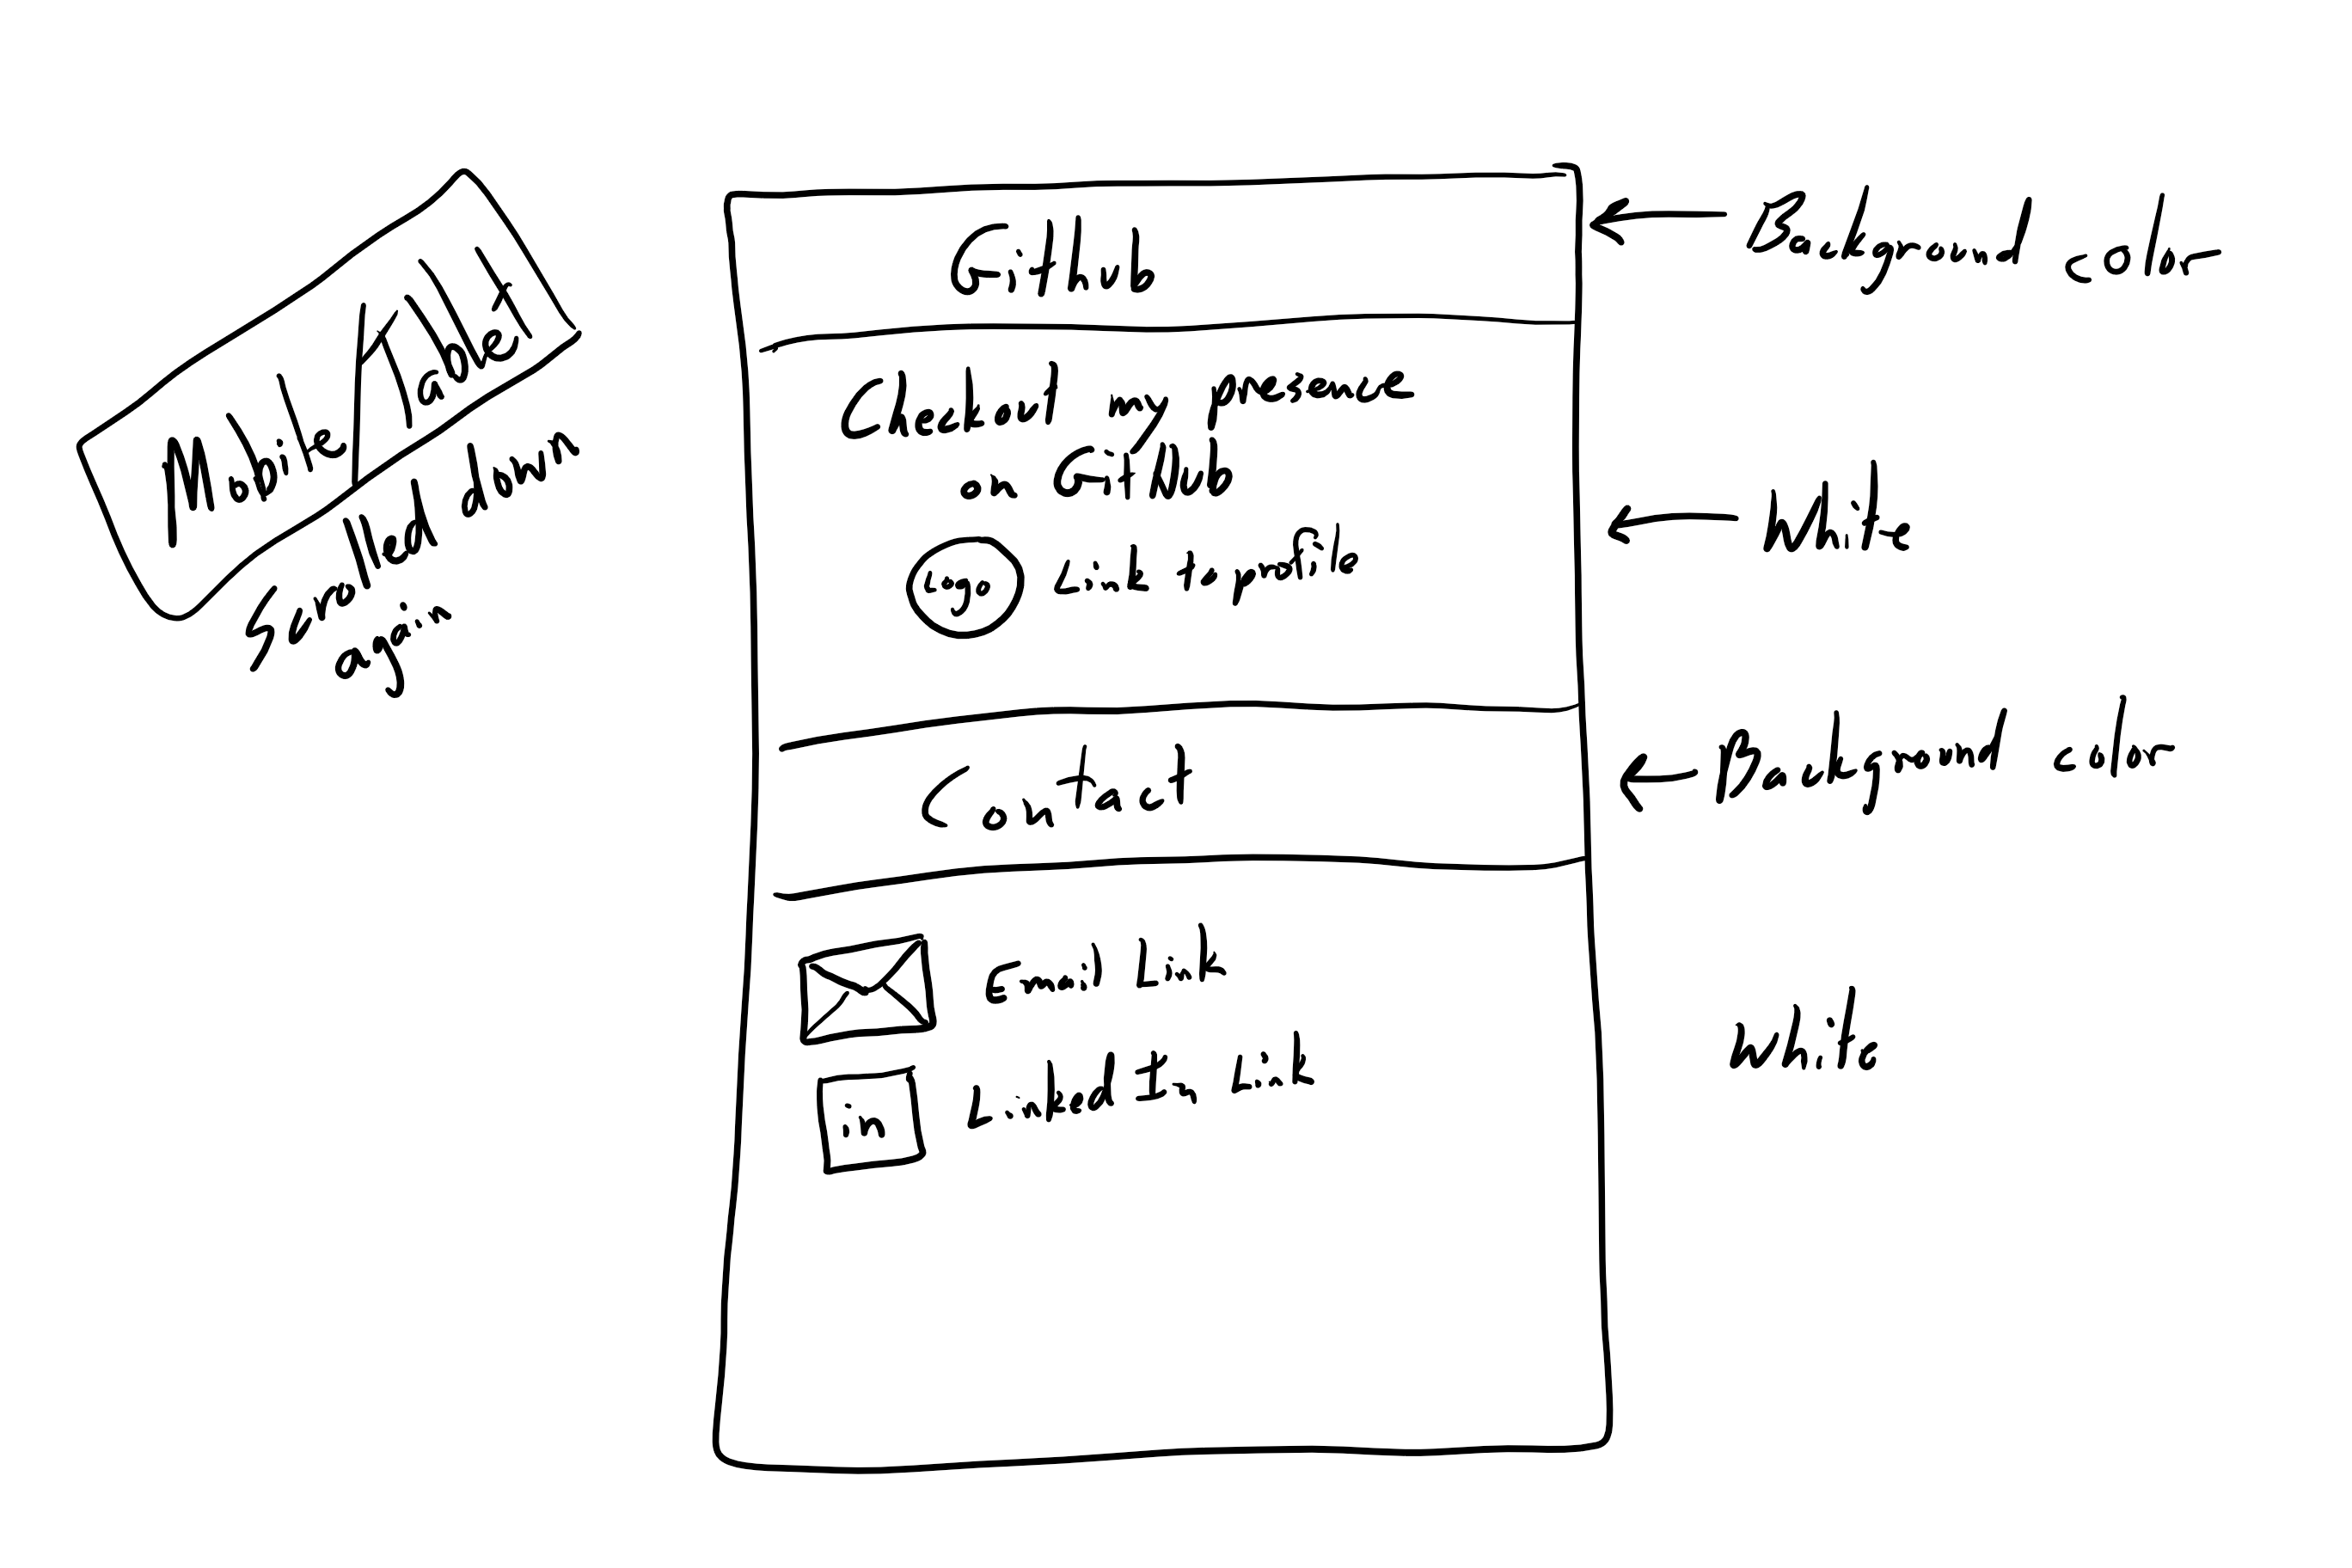 Mobile/Tablet
Scrolled down
again
Github
Background color
Check out my presence
on GitHub
Logo Link to profile
White
Contact
Background color
Email Link
in Linked In Link
White